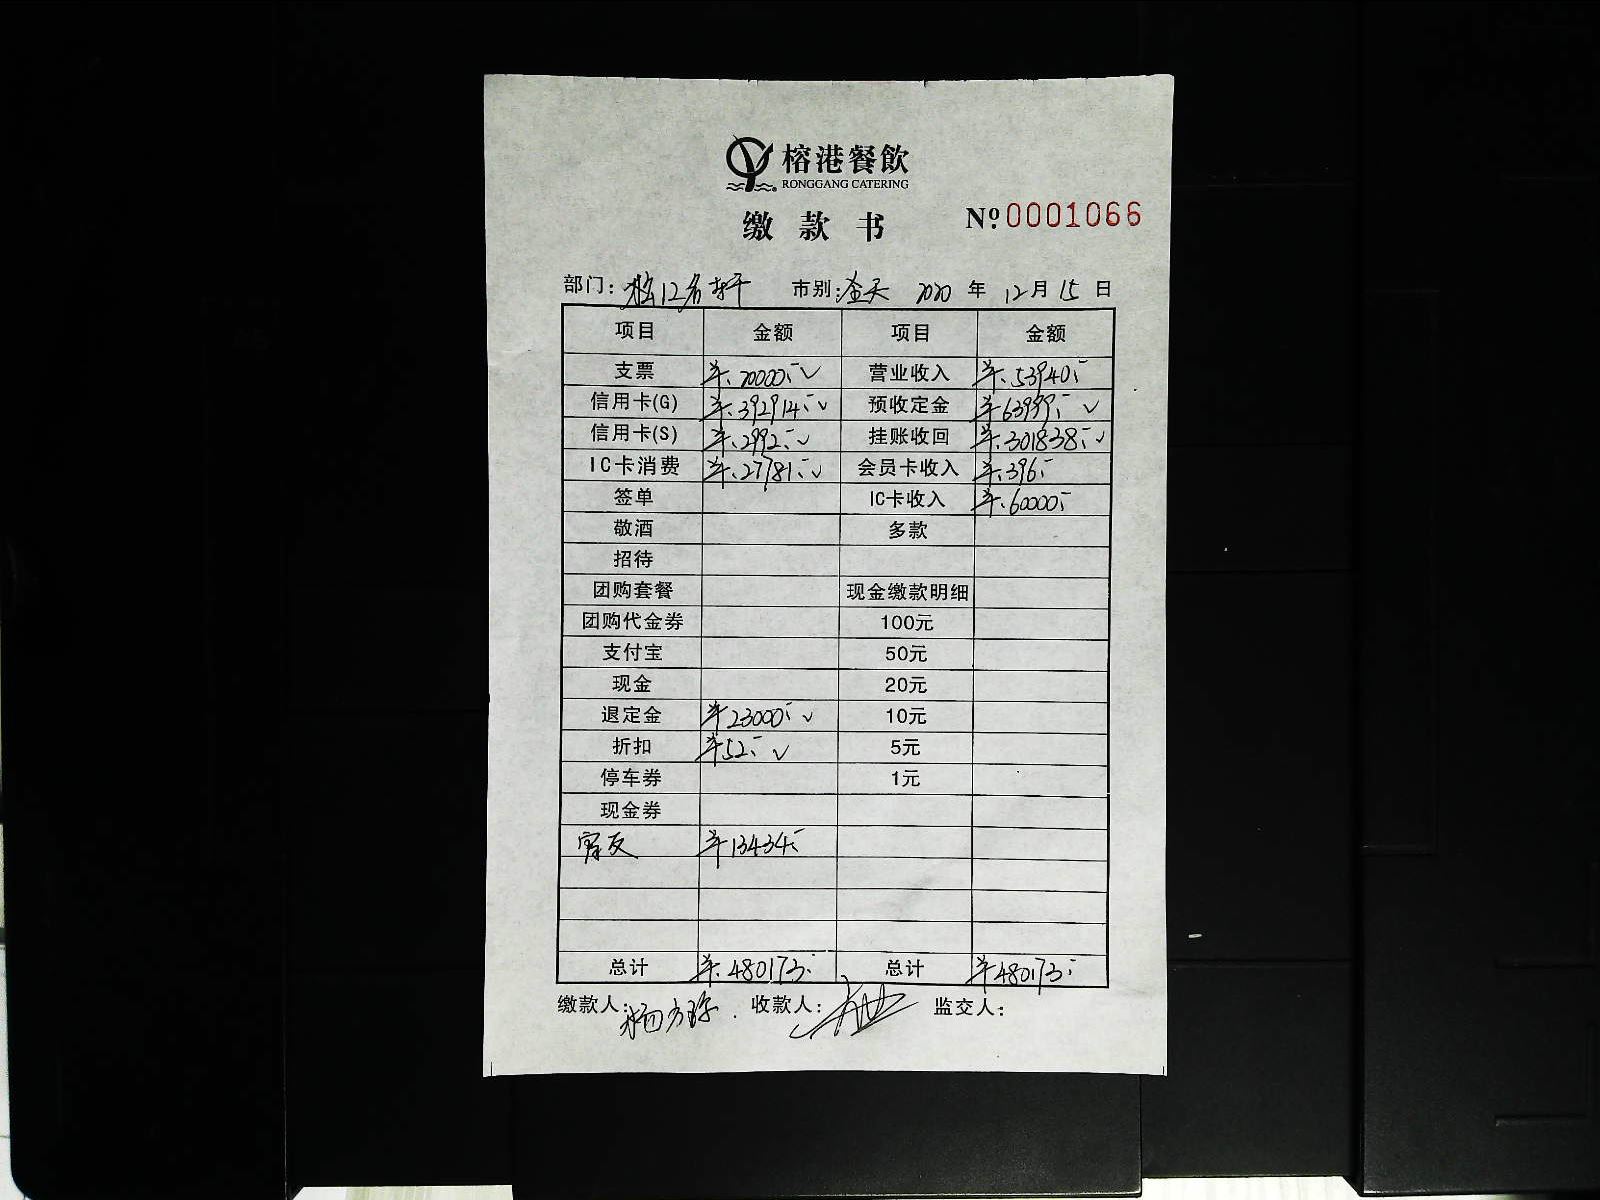 榕港餐飲
RONGGANG CATERING
缴款书 Nº.0001066
部门: 名轩 市别:全天 2020 年 12月 15 日
项目 金额 项目 金额
支票 ¥.20000.- ✓ 营业收入 ¥.53940.-
信用卡(G) ¥.392914.- ✓ 预收定金 ¥63999.- ✓
信用卡(S) ¥.2992.- ✓ 挂账收回 ¥.301838.- ✓
IC卡消费 ¥.27781.- ✓ 会员卡收入 ¥.396.-
签单 IC卡收入 ¥.60000.-
敬酒 多款
招待
团购套餐 现金缴款明细
团购代金券 100元
支付宝 50元
现金 20元
退定金 ¥23000.- ✓ 10元
折扣 ¥52.- ✓ 5元
停车券 1元
现金券
¥13434.-
总计 ¥.480173.- 总计 ¥480173.-
缴款人: 杨方 收款人: 监交人: